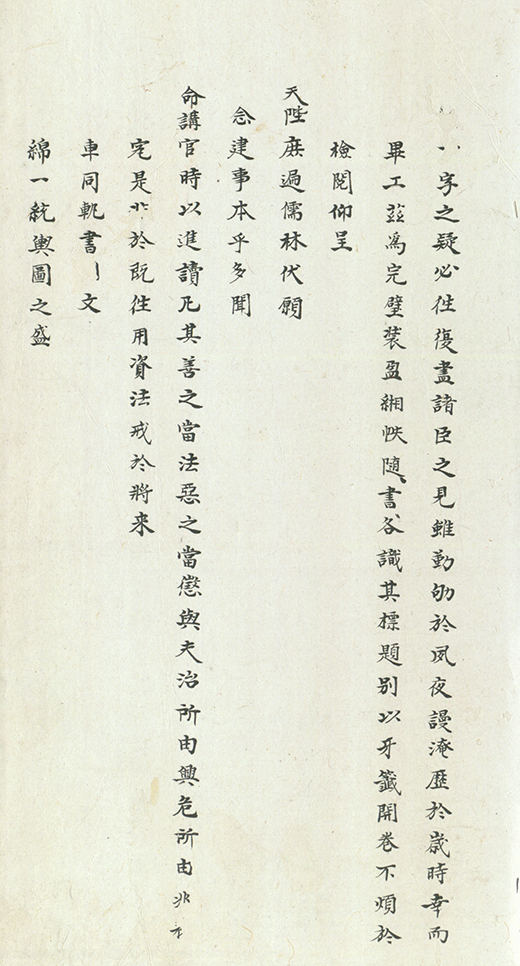 八字之疑必往復盡諸臣之見雖勤劬於夙夜謾淹歷於歲時幸而
畢工茲為完璧裝盈緗帙隨書各識其標題別以牙籤開卷不煩於
檢閱仰呈
天陛庶遍儒林伏願
念建事本乎多聞
命講官時以進讀凡其善之當法惡之當懲與夫治所由興危所由兆
定是非於既往用資法戒於將来
車同軌書文
綿一統輿圖之盛